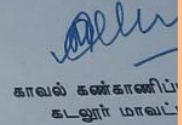 காவல் கண்காணிப்
கடலூர் மாவட்